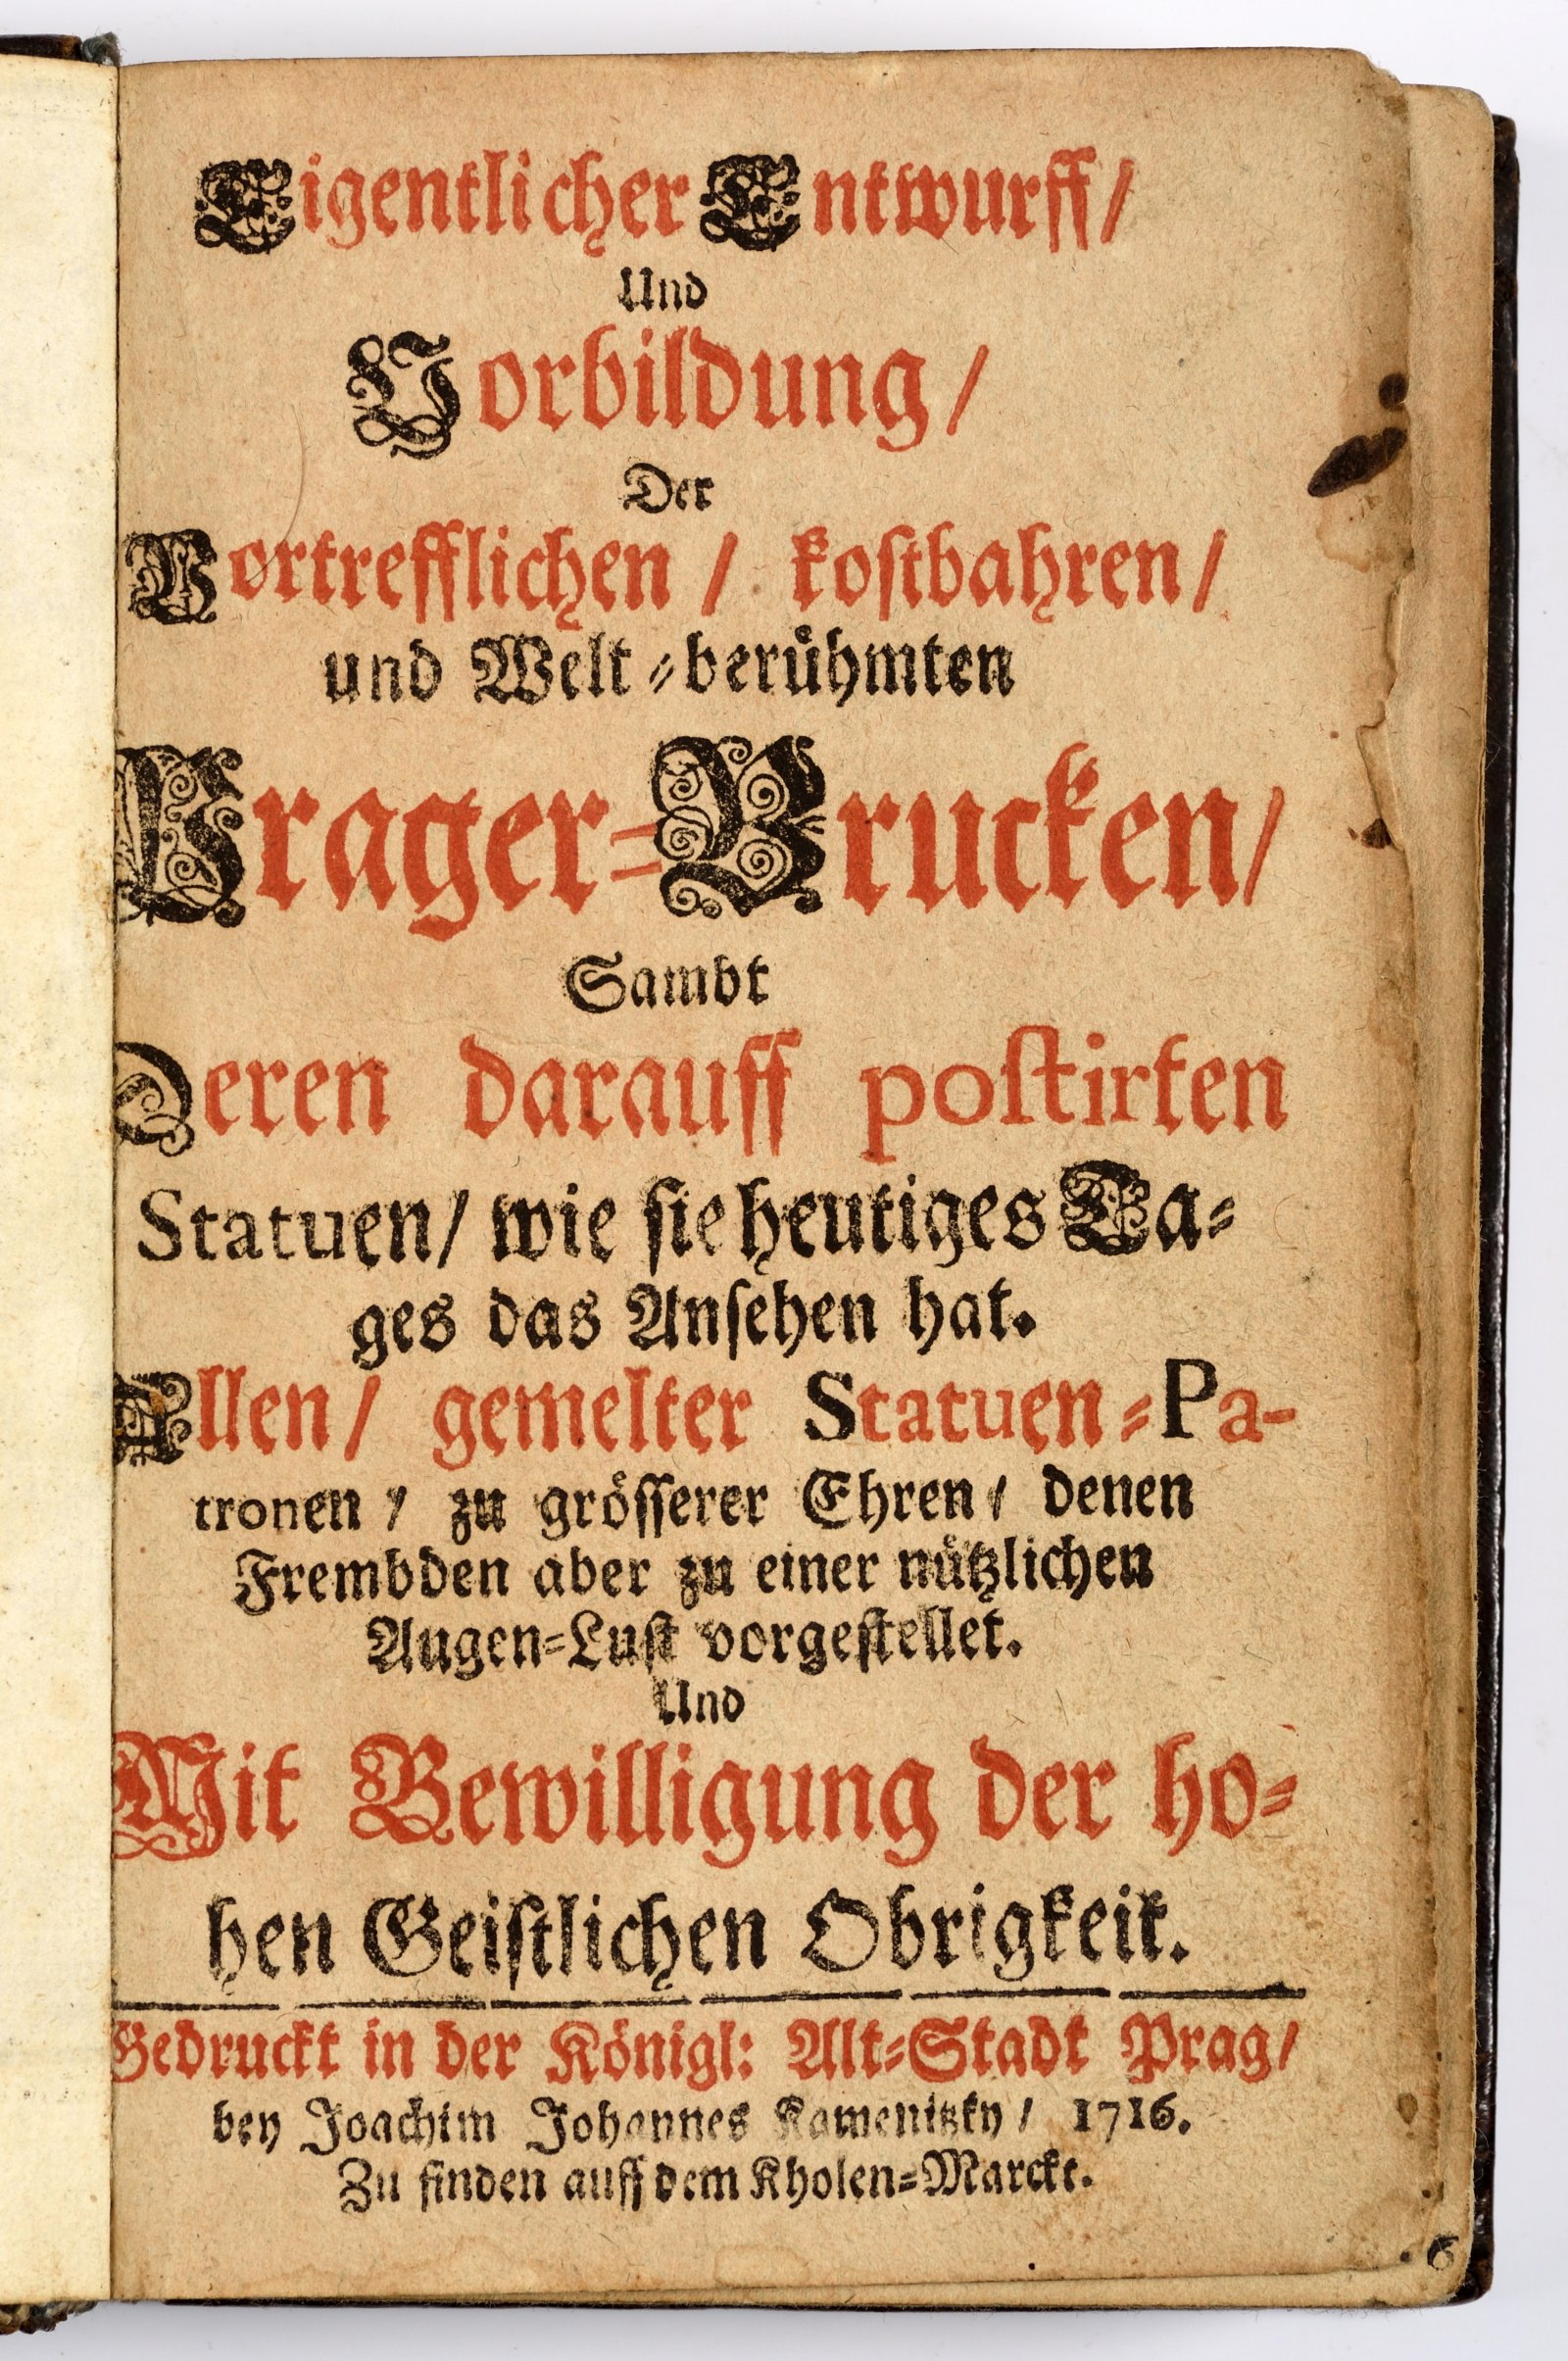 Eigentlicher Entwurff/
Und
Vorbildung/
Der
Vortrefflichen/ kostbahren/
und Welt-berühmten
Prager-Brucken/
Sambt
Deren darauff postirten
Statuen/ wie sie heutiges Ta-
ges das Ansehen hat.
Allen/ gemelter Statuen-Pa-
tronen/ zu grösserer Ehren/ denen
Frembden aber zu einer nützlichen
Augen-Lust vorgestellet.
Und
Mit Bewilligung der ho-
hen Geistlichen Obrigkeit.
Gedruckt in der Königl: Alt-Stadt Prag/
bey Joachim Johannes Kamenitzky/ 1716.
Zu finden auff dem Kholen-Marckt.
6